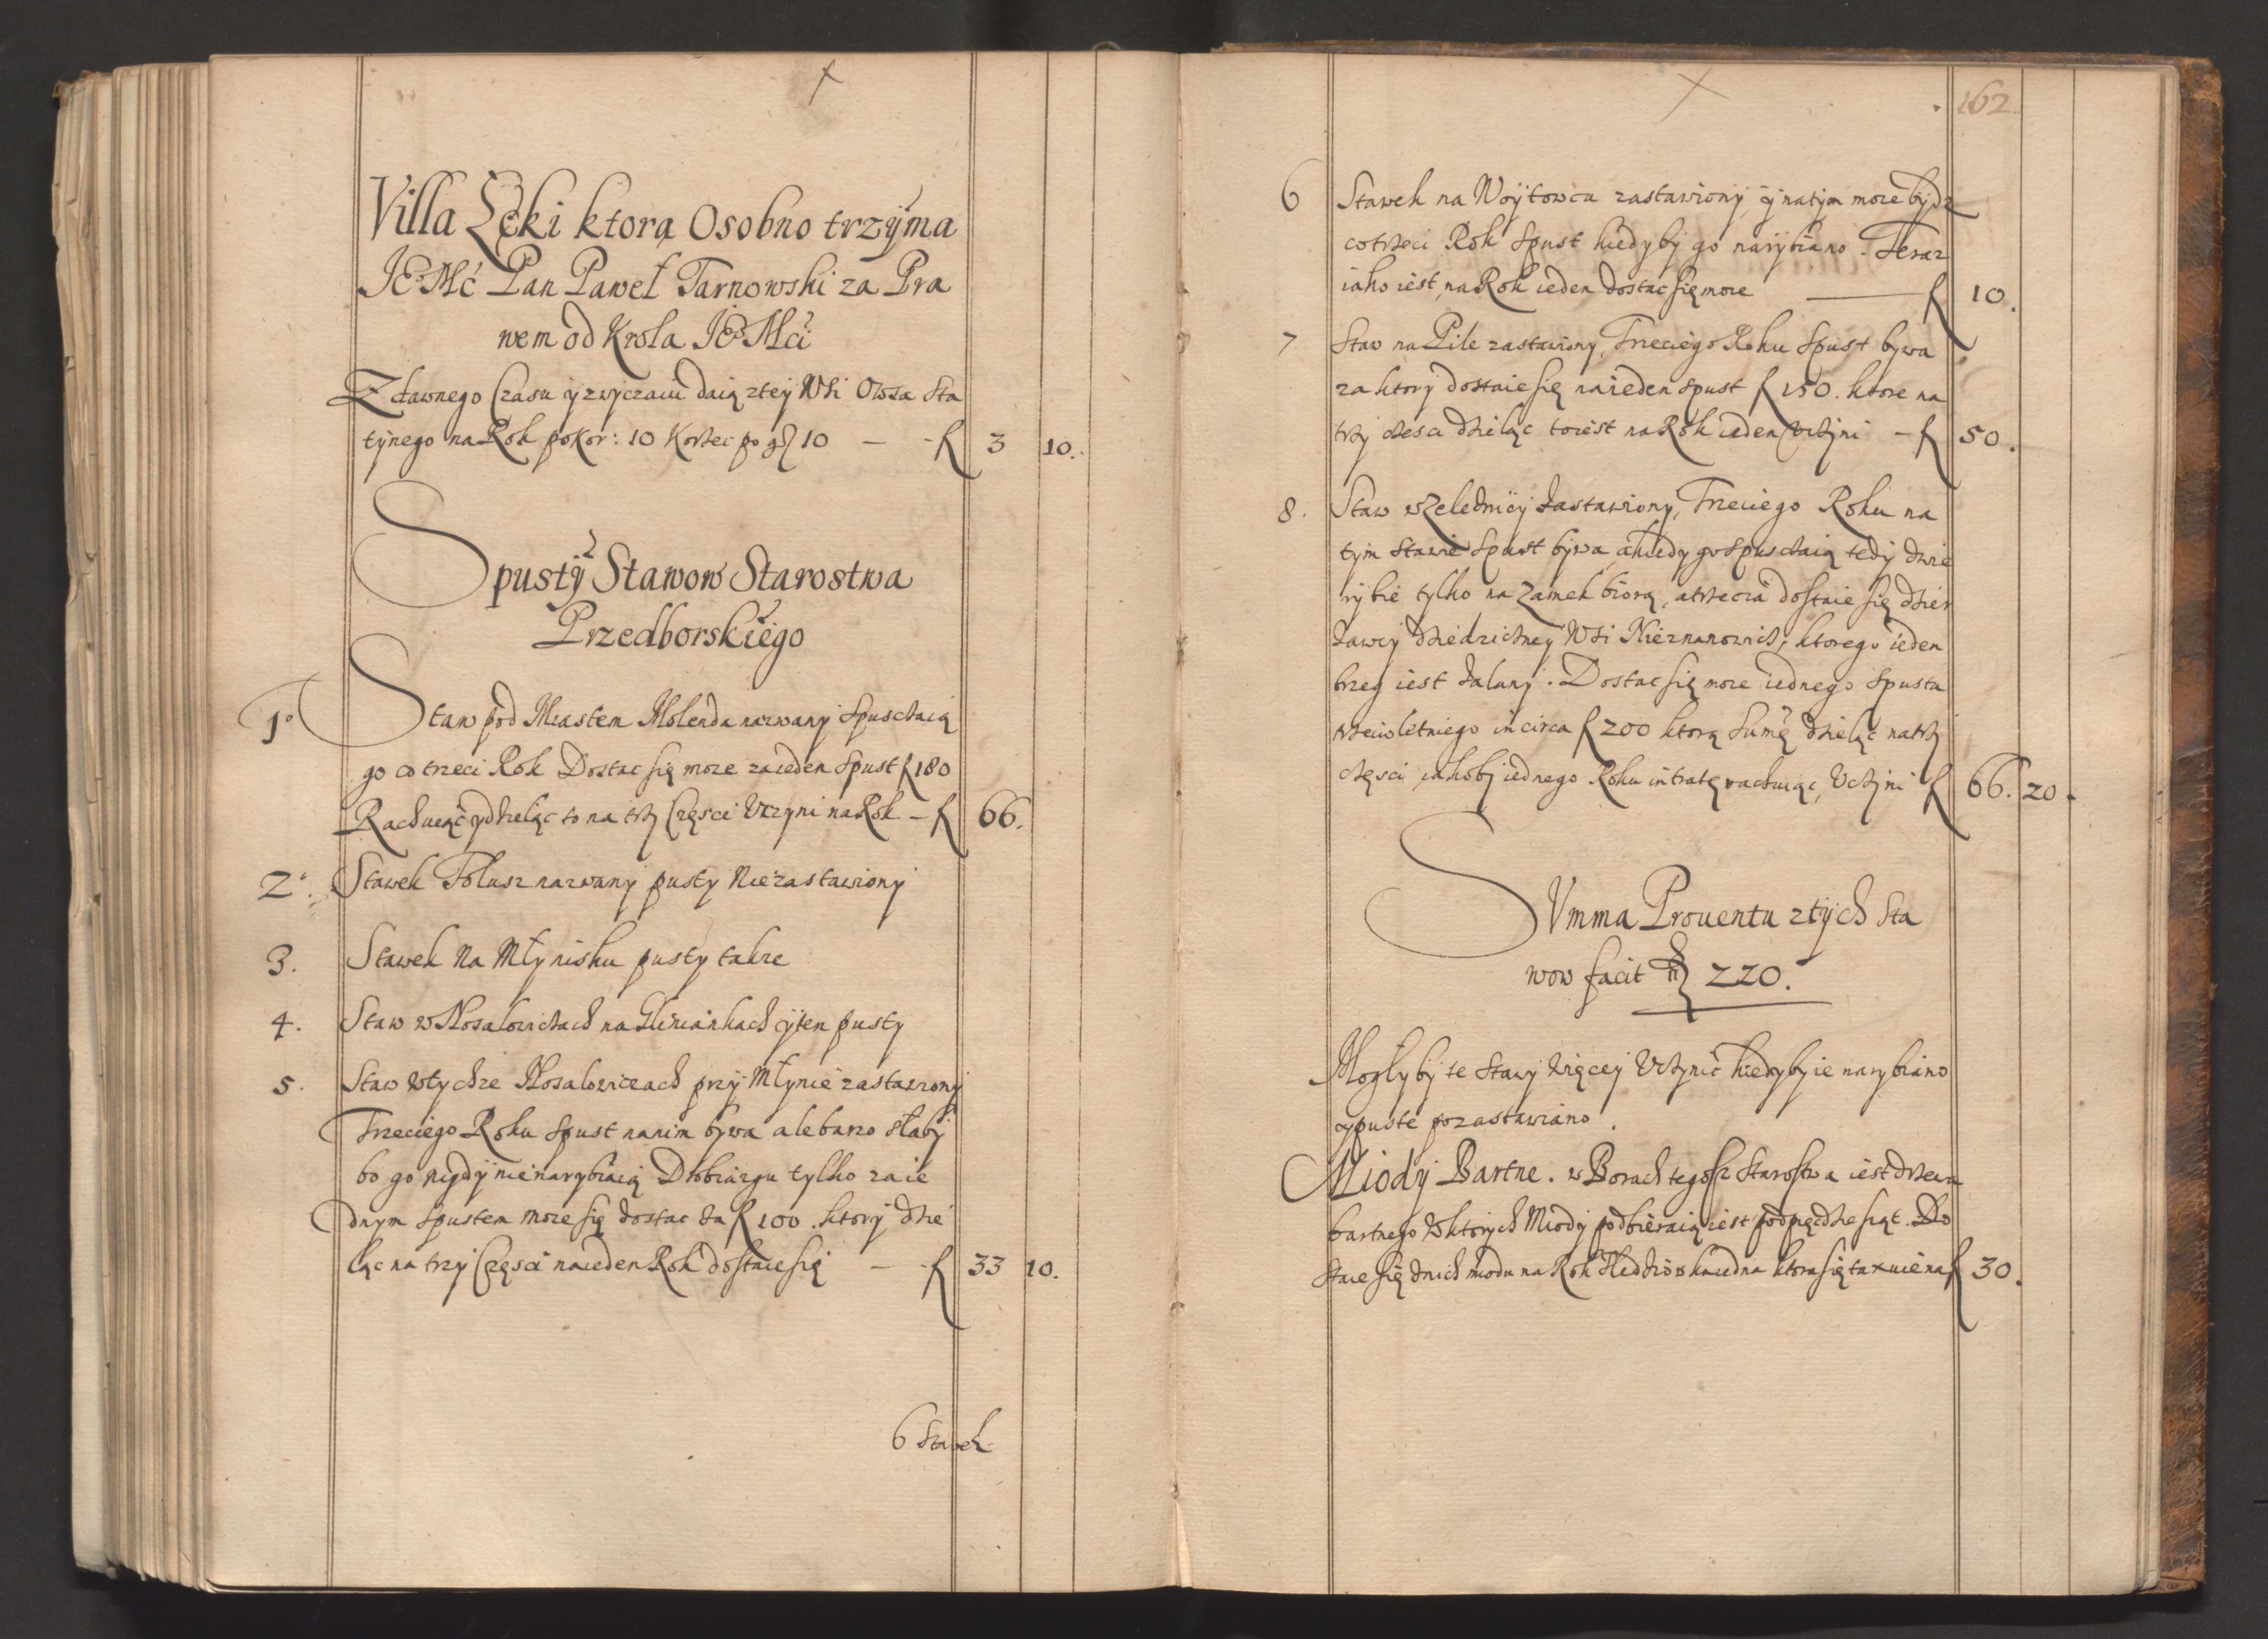 Villa Łęki ktorą Osobno trzÿma
JEo Mć Pan Paweł Tarnowski za Pra
wem od Krola JEo Mći
Zdawnego Czasu ÿ zwyczaiu daią z teÿ Wsi Owsa Sta
tÿnego na Rok po kor: 10 Korzec po gß 10 — - f 3 10.
Spustÿ Stawow Starostwa
Przedborskiego
1o Staw pod Miastem Molenda nazwanÿ Spuszczaią
go co trzeci Rok Dostac się moze za ieden Spust f 180
Rachuiąc ÿ dzieląc to na trzÿ Częsci Vczyni na Rok — f 66.
2o. Stawek Folusz nazwanÿ pustÿ Niezastawionÿ
3. Stawek Na Młynisku pusty takze
4. Staw w Mosalowiczach na Gliniankach ÿ ten pustÿ
5. Staw w tychze Mosalowicach przÿ Młynie zastawionÿ
Trzeciego Roku Spust na nim bÿwa ale barzo słabÿ
bo go nigdÿ nie narybiaią Drobiazgu tylko za ie
dnym Spustem moze się dostac za f 100. ktorÿ dzie
ląc na trzÿ Częsci na ieden Rok dostaie się — - f 33 10.
6 Stawek
162
6 Stawek na Woÿtowcu zastawionÿ, ÿ na tÿm moze bydz
co trzeci Rok Spust kiedy bÿ go narybiano. Teraz
iako iest, na Rok ieden dostac się moze — f 10.
7 Staw na Pile zastawiony, Trzeciego Roku Spust bywa
za ktorÿ dostaie się na ieden spust f 150. ktore na
trzÿ czesci dzieląc to iest na Rok ieden Vczÿni — f 50.
8. Staw w Zeleznicÿ zastawiony, Trzeciego Roku na
tÿm Stawie Spust bÿwa, a kiedy go Spuszczaią tedÿ dwie
rÿbie tylko na Zamek biorą, a trzecia dostaie się dzier
zawcÿ dziedziczneÿ Wsi Nieznanowic, ktorego ieden
brzeg iest zalany. Dostac się moze iednego Spustu
trzecioletniego in circa f 200 ktorą Summę dzieląc na trzÿ
częsci iakobÿ iednego Roku intratę rachuiąc, Vczÿni f 66. 20.
SVmma Prouentu z tÿch Sta
wow facit fl 220.
Mogłybÿ te Stawÿ więceÿ Vczynić kiedybÿ ie narybiano
ÿ puste pozastawiano.
Miodÿ Bartne. w Borach tegosz Starostwa iest drzewa
bartnego w ktorych Miodÿ podbieraią iest pod pięcdziesiąt. Do
staie się znich miodu na Rok iedna ktora się taxuie na f 30.